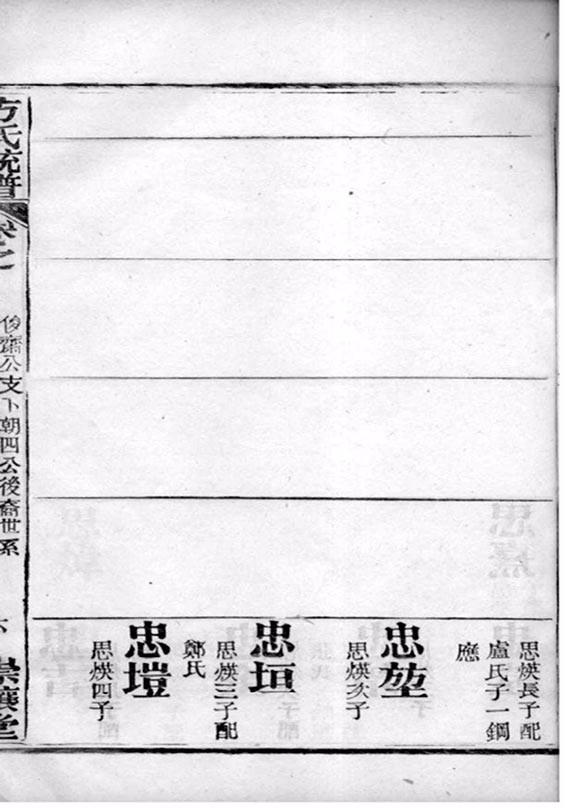 思煐長子配
盧氏子一鋼
應
忠堃
思煐次子
忠垣
思煐三子配
鄭氏
忠塏
思煐四子
方氏統譜
卷之
俊齋公支下朝四公後裔世系